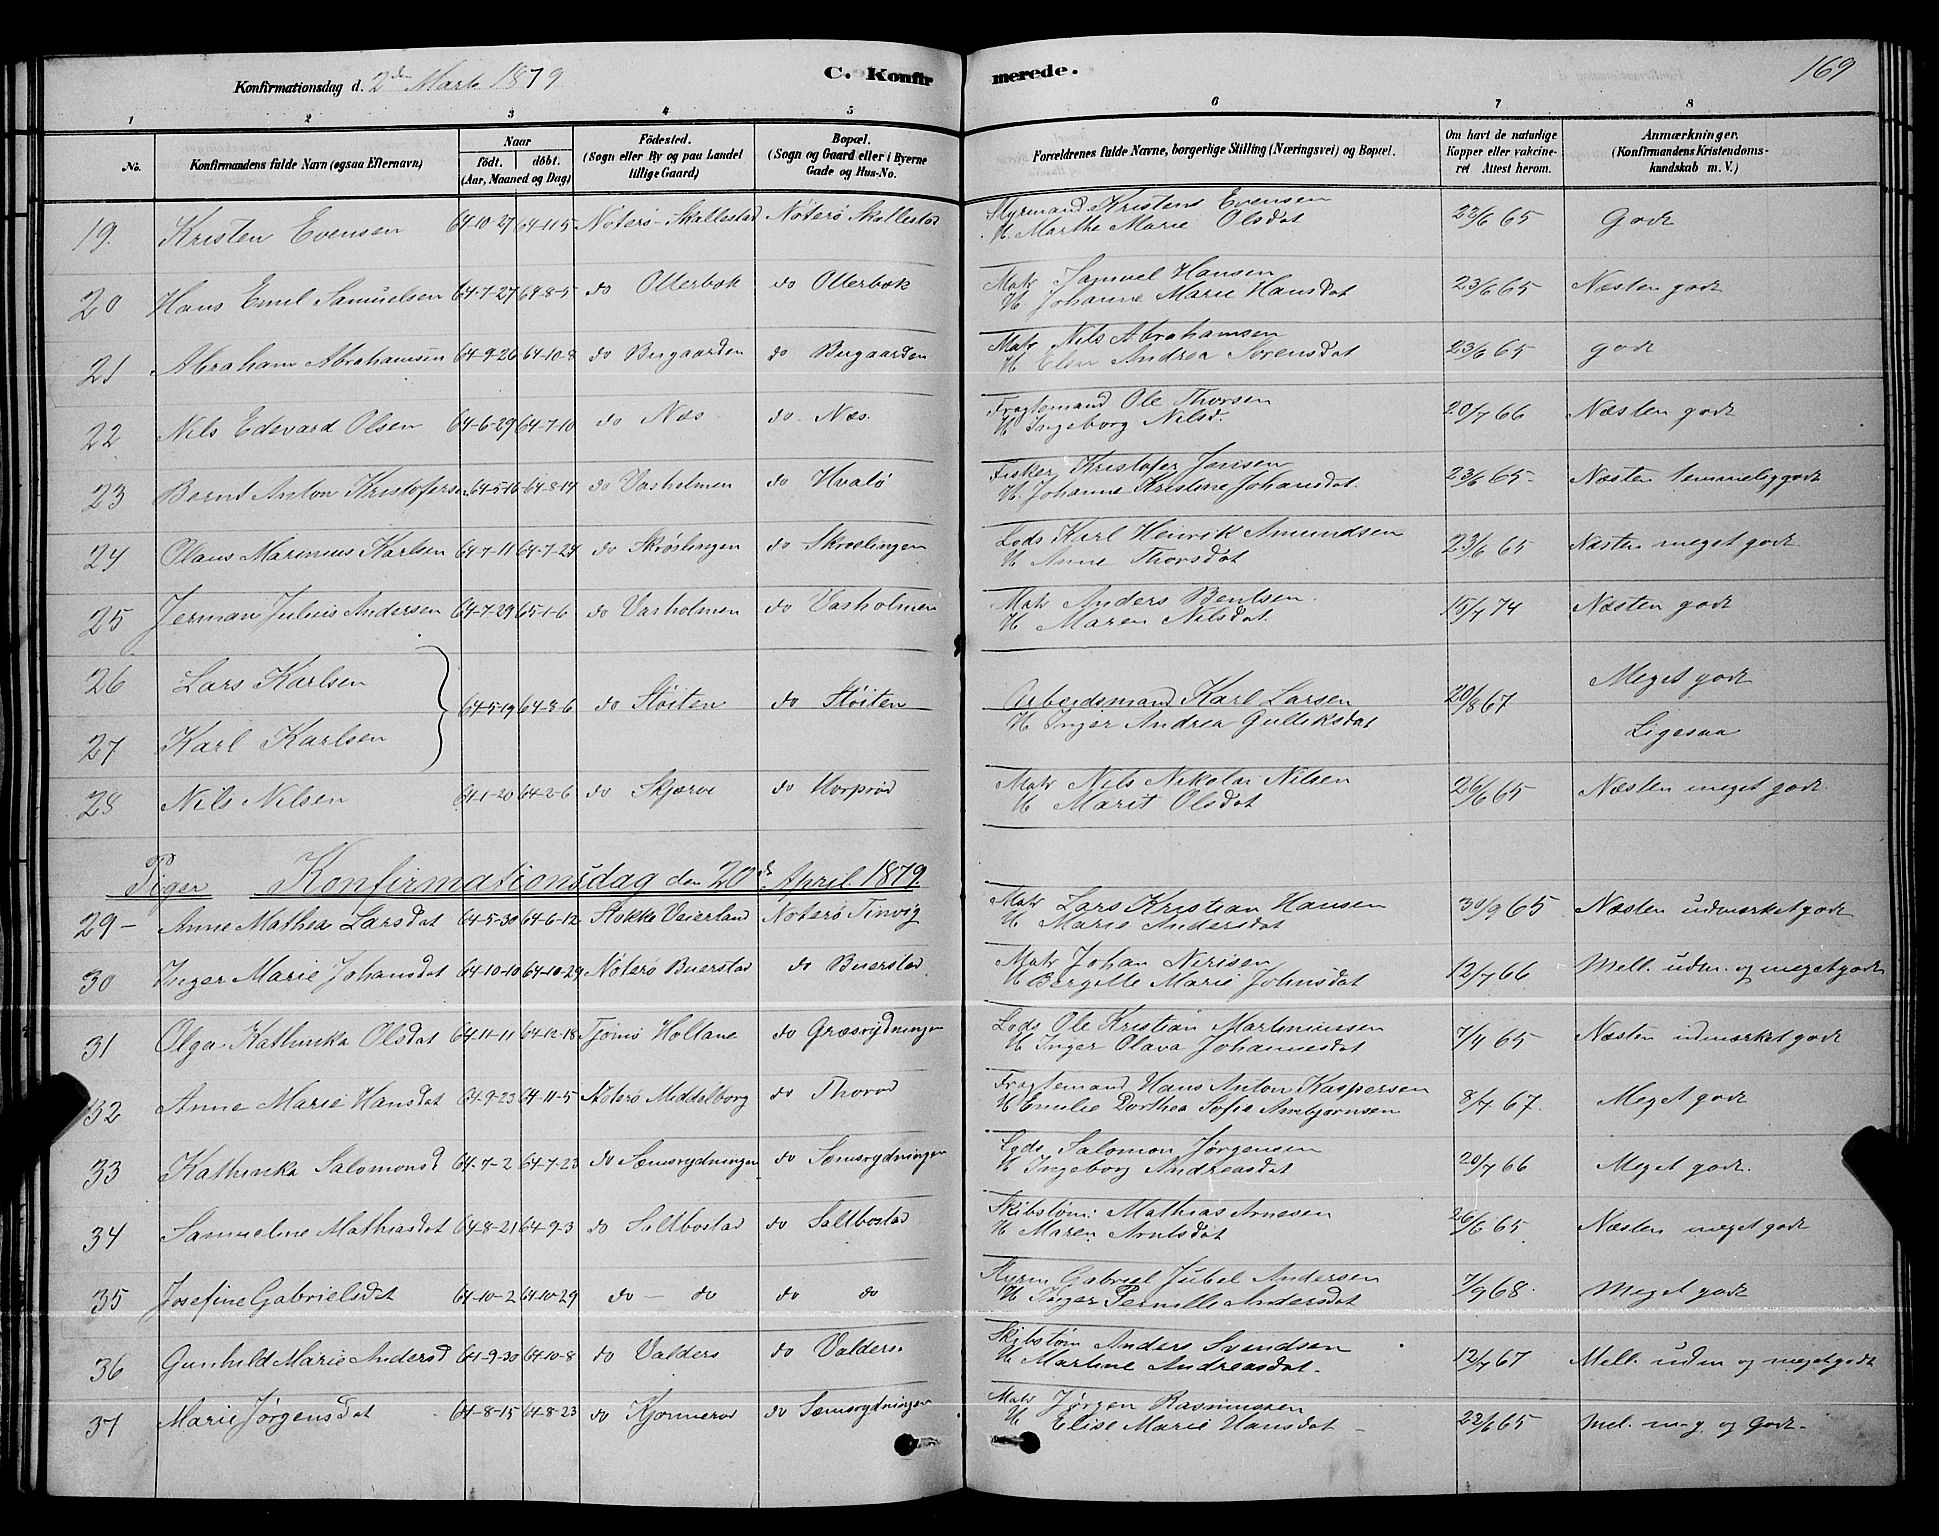 Konfirmationsdag d. 2den Marts 1879
C. Konfirmerede.
169
1 2 3 4 5 6 7 8
No. Konfirmandens fulde Navn (ogsaa Efternavn) Naar födt. döbt. (Aar, Maaned og Dag) Födested. (Sogn eller By og paa Landet tillige Gaard) Bopæl. (Sogn og Gaard eller i Byerne Gade og Hus-No. Forældrenes fulde Navne, borgerlige Stilling (Næringsvei) og Bopæl. Om havt de naturlige Kopper eller vakcineret Attest herom. Anmærkninger. (Konfirmandens Kristendomskundskab m. V.)
19. Kristen Evensen 64-10-27 64-11-5 Nöterö-Skallestad Nöterö Skallestad Styrmand Kristens Evensen 22/6 65 Godt
H. Marthe Marie Olsdat
20 Hans Emil Samuelsen 64-7-27 64-8-5 do Ollerbok do Ollerbok Matr Samuel Hansen 23/6 65 Næsten godt
H Johanne Marie Hansdat
21 Abraham Abrahamsen 64-9-26 64-10-8 do Bergaarden do Bergaarden Matr Nils Abrahamsen 23/6 65 godt
H Elen Andrea Sorensdat
22 Nils Edevard Olsen 64-6-29 64-7-10 do Næs do Næs. Fragtemand Ole Thorsen 20/7 66 Næsten godt
H Ingeborg Nilsd.
23 Bernt Anton Kristofersen 64-5-16 64-8-14 do Vasholmen do Hvalö Fisker Kristofer Jensen 23/6 65 Næsten temmelig godt
H Johanne Kristine Johansdat.
24 Olaus Marinius Karlsen 64-7-11 64-7-24 do Skröslingen do Skroslingen Lods Karl Henrik Amundsen 23/6 65 Næsten meget godt
H Anne Thorsdat
25 Jerman Julius Andersen 64-7-29 65-1-6 do Vasholmen do Vasholmen Matr Anders Bentsen 15/7 74 Næsten godt
H Maren Nilsdat
26 Lars Karlsen 64-5-19 64-8-6 do Stöiten do Stöiten Arbeidsmand Karl Larsen 20/8 67 Meget godt
27 Karl Karlsen H Inger Andrea Gulliksdat Ligesaa
28 Nils Nilsen 64-1-20 64-2-6 do Skjærve do Horprod Matr Nils Nikolai Nilsen 26/6 65 Næsten meget godt
H Marit Olsdat
Piger Konfirmationsdag den 20de April 1879.
29- Anne Mathea Larsdat 64-5-30 64-6-12 Stokke Vaierland Noterö Tinvig Matr Lars Kristian Hansen 30/9 65 Næsten udmærket godt
H Marie Andersdat
30 Inger Marie Johansdat 64-10-10 64-10-29 Nöterö Buerstad do Buerstad Matr Johan Nerisen 12/7 66 Mell. udm. og meget godt
H Bergitte Marie Johnsdat
31 Olga Kathinka Olsdat 64-11-11 64-12-18 Tjömö Holtane do Græsrydningen Lods Ole Kristian Martiniussen 7/4 65 Næsten udmærket godt
H Inger Olava Johannesdat
32 Anne Marie Hansdat 64-9-23 64-11-5 Nöterö Middelborg do Thorod Fragtemand Hans Anton Kaspersen 8/7 67. Meget godt
H Emilie Dorthea Sofie Arnbjornsen
33 Kathinka Salomonsd 64-7-2 64-7-23 do Semsrydningen do Semsrydningen Lods Salomon Jörgensen 20/7 66 Meget godt.
H Ingeborg Andreasdat
34 Samueline Mathiasdat 64-8-21 64-9-3 do Saltbostad do Saltbostad Skibstöm: Mathias Arnesen 26/6 65 Næsten meget godt
H Maren Arntsdat
35 Josefine Gabrielsdat 64-10-2 64-10-29 do - do do do Styrm Gabriel Jubel Andersen 7/9 68. Meget godt
H Inger Pernille Andersdat
36 Gunhild Marie Andersd 64-9-30 64-10-8 do Valders do Valders. Skibstöm Anders Svendsen 12/7 67 Mell. udm og meget godt
H Martine Andreasdat.
37 Marie Jörgensdat 64-8-15 64-8-23 do Kjonnerod do Semsrydningen Matr Jörgen Rasmussen 22/6 65 Mel. m g og Godt
H Elise Marie Hansdat